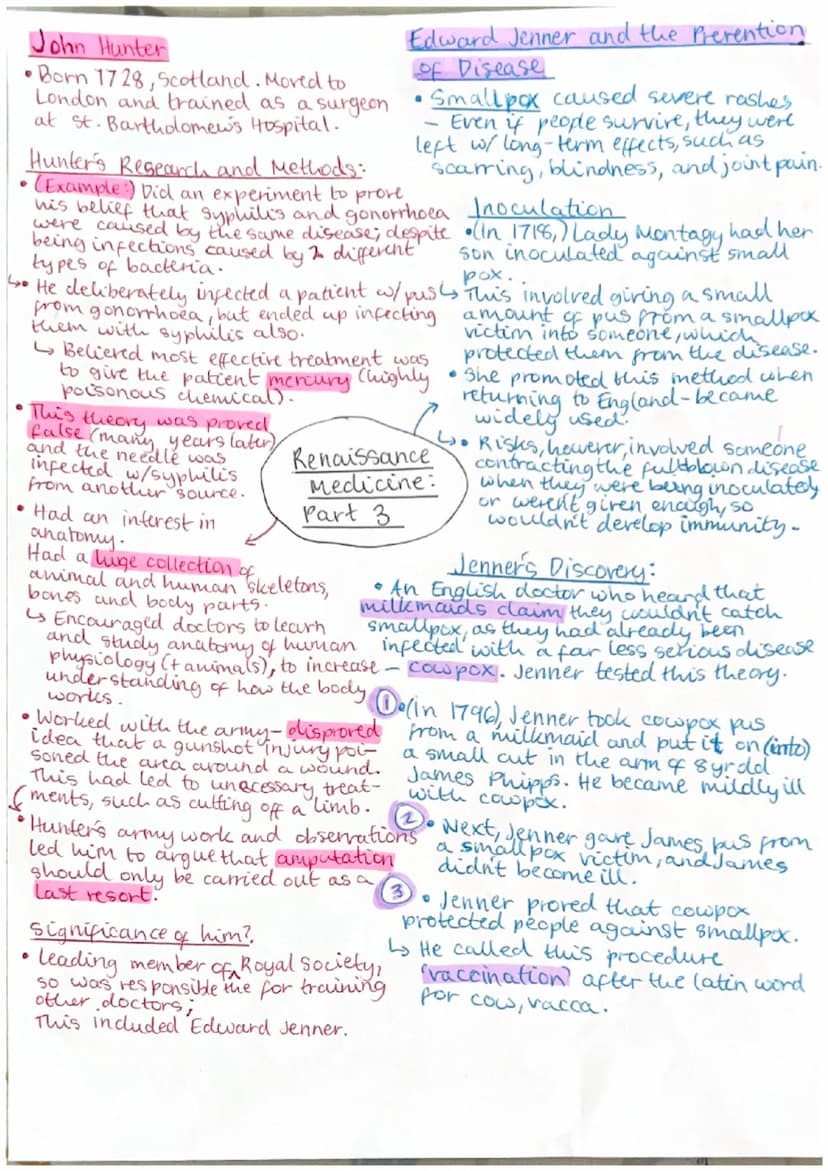 John Hunter
• Born 1728, Scotland. Moved to
London and trained as a surgeon
at St. Bartholomew's Hospital.
Hunter's Research and Methods:
• (Example:) Did an experiment to prove
his belief that syphilis and gonorrhoea
were caused by the same disease; despite
being infections caused by 2 different
types of bacteria.
↳• He deliberately infected a patient w/ pus
from gonorrhoea, but ended up infecting
them with syphilis also.
↳ Believed most effective treatment was
to give the patient mercury (highly
poisonous chemical).
• This theory was proved
false (many years later)
and the needle was
infected w/syphilis
from another source.
• Had an interest in
anatomy.
Had a huge collection of
animal and human skeletons,
bones and body parts.
↳ Encouraged doctors to learn
and study anatomy of human
physiology (+ animals), to increase
understanding of how the body
works.
• Worked with the army - disproved
idea that a gunshot injury poi-
soned the area around a wound.
This had led to unecessary treat-
ments, such as cutting off a limb.
• Hunter's army work and observations
led him to argue that amputation
should only be carried out as a
last resort.
Significance of him?
• Leading member of the Royal Society,
so was responsible for training
other doctors;
This included Edward Jenner.
Renaissance
Medicine:
Part 3
Edward Jenner and the Prevention
of Disease
• Smallpox caused severe rashes
- Even if people survive, they were
left w/ long-term effects, such as
scarring, blindness, and joint pain.
Inoculation
• (In 1718,) Lady Montagy had her
son inoculated against small
pox.
↳ This involved giving a small
amount of pus from a smallpox
victim into someone, which
protected them from the disease.
• She promoted this method when
returning to England - became
widely used.
↳• Risks, however, involved someone
contracting the fullblown disease
when they were being inoculated,
or weren't given enough, so
wouldn't develop immunity -
Jenner's Discovery:
• An English doctor who heard that
milkmaids claim they wouldn't catch
smallpox, as they had already been
infected with a far less serious disease
- cowpox. Jenner tested this theory.
① • (In 1796), Jenner took cowpox pus
from a milkmaid and put it on (into)
a small cut in the arm of 8 yr old
James Phipps. He became mildly ill
with cowpox.
② • Next, Jenner gave James, pus from
a smallpox victim, and James
didn't become ill.
③ • Jenner proved that cowpox
protected people against smallpox.
↳ He called this procedure
'vaccination' after the latin word
for cow, vacca.